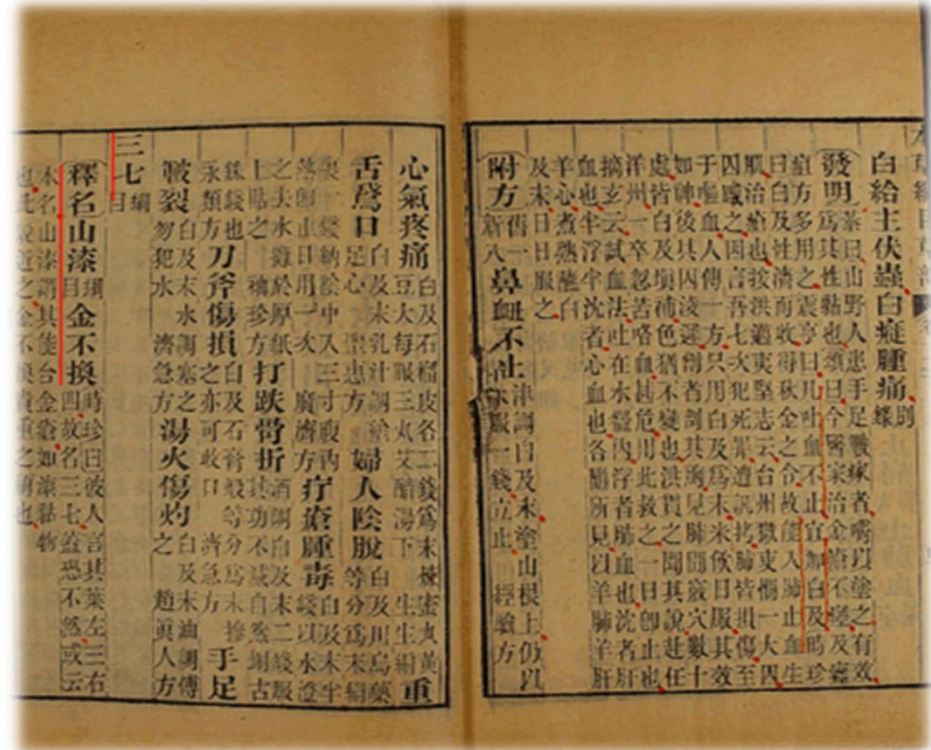 本草綱目草部
白給主伏蟲白癬腫痛別錄
發明恭曰山野人患手足皸瘃者嚼以塗之有效
爲其性黏也頌曰今醫家治金瘡不瘥及癰
疽方多用之震亨曰凡吐血不止宜加白及時珍
曰白及性澁而收得秋金之令故能入肺止血生
肌治瘡也按洪邁夷堅志云台州獄吏憫一大囚
囚感之因言吾七次犯死罪遭訊拷肺皆損傷至
于嘔血人傳一方只用白及爲末米飲日服其效
如神後其囚凌遲劊者剖其胸見肺間竅穴數十
處皆白及塡補色猶不變也洪貫之聞其說赴任
洋州一卒忽苦咯血甚危用此救之一日卽止也
摘玄云試血法吐在水盌內浮者肺血也沈者肝
血也半浮半沈者心血也各隨所見以羊肺羊肝
羊心煮熟蘸白
及末日日服之
附方舊一新八鼻衄不止津調白及末塗山根上仍以
水服一錢立止 經驗方
心氣疼痛白及石榴皮各二錢爲末煉蜜丸黃
豆大每服三丸艾醋湯下 生生編 重
舌鵞口白及末乳汁調塗足心 聖惠方 婦人陰脫白及川烏藥等分爲末絹
裹一錢納陰中入三寸腹內熱卽止日用一次 廣濟方 疔瘡腫毒白及末半錢以水澄
之去水攤於厚紙上貼之 袖珍方 打跌骨折酒調白及末二錢服其功不減自然銅古
銖錢也 永類方 刀斧傷損白及石膏煅等分爲末摻之亦可收口 濟急方 手足
皸裂白及末水調塞之勿犯水 濟急方 湯火傷灼白及末油調傅之 趙眞人方
三七綱目
釋名山漆綱目金不換時珍曰彼人言其葉左三右
四故名三七蓋恐不然或云
本名山漆謂其能合金瘡如漆黏物
也此說近之金不換貴重之稱也